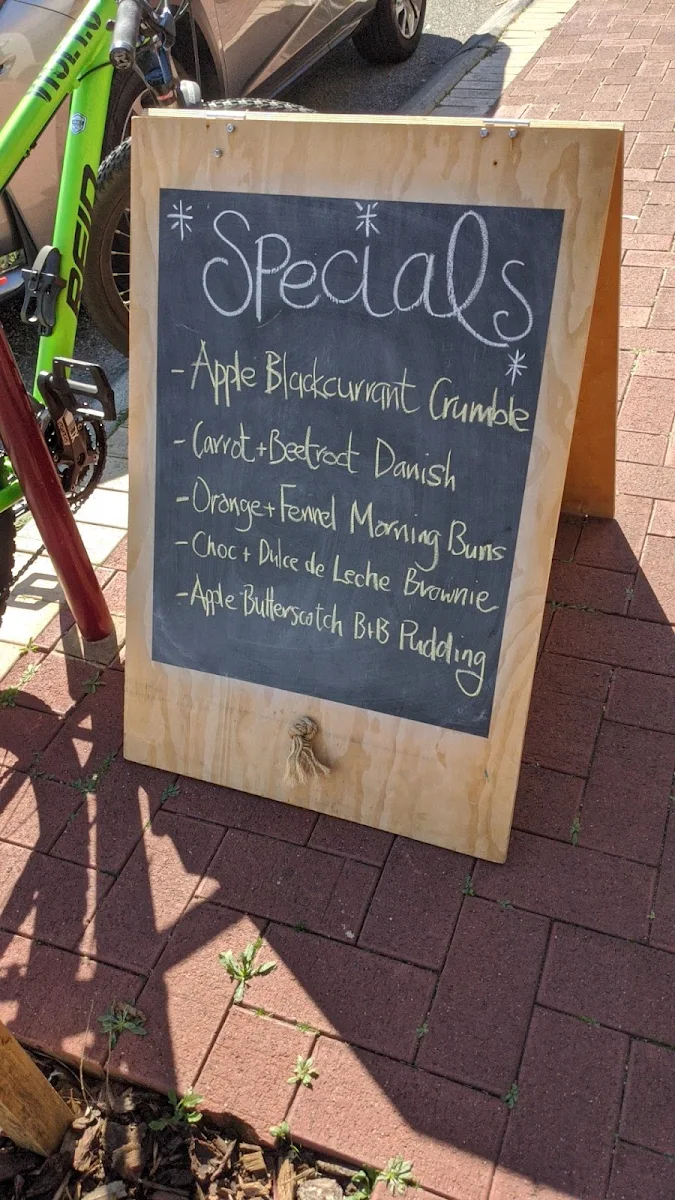 Specials
- Apple Blackcurrant Crumble
- Carrot + Beetroot Danish
- Orange + Fennel Morning Buns
- Choc + Dulce de Leche Brownie
- Apple Butterscotch B+B Pudding
REID